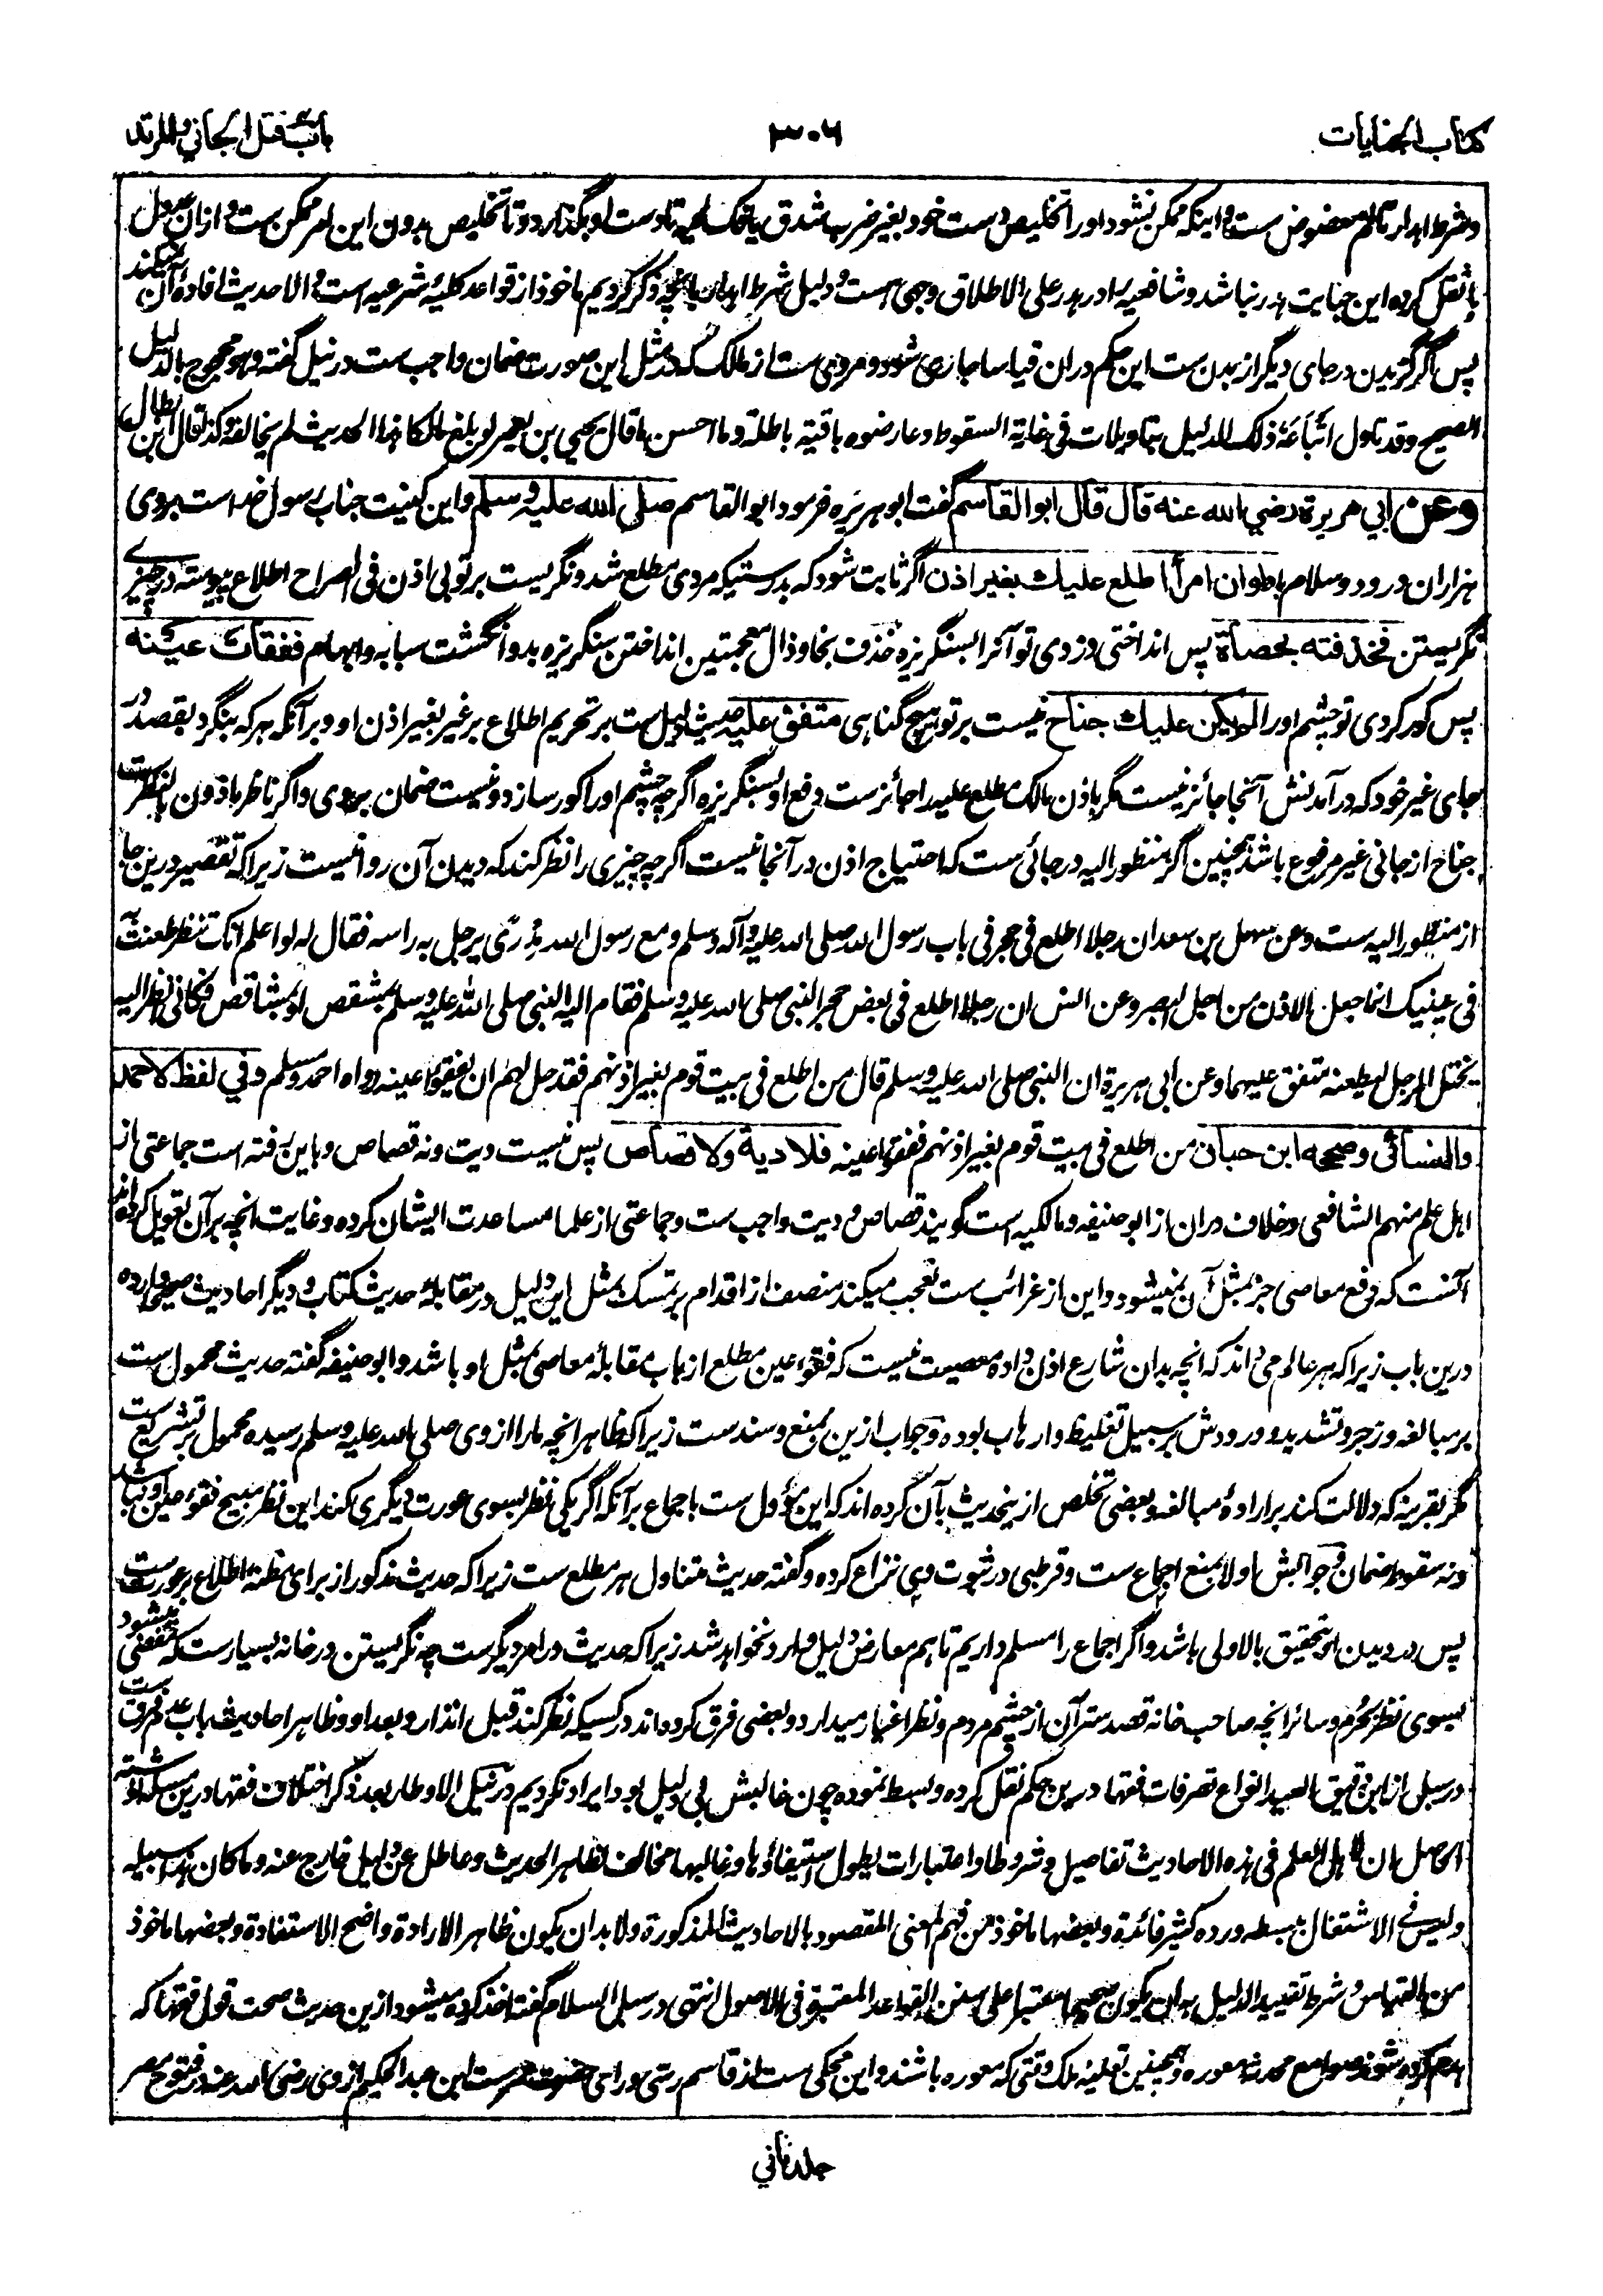 كتاب الجنايات
٣٠٦
باب قتل الجاني والمرتد
وشرط اهدار تالم معضوض ست و اینکه ممکن نشود او را تخلیص دست خود بغیر ضرب شدق یا فک لحیه تا دست او بگذارد و تا تخلیص بدون این امر ممکن ست و ازان عدول
باثقل کرده این جنایت هدر نباشد و شافعیه را در هدر علی الاطلاق وجهی ست و دلیل شرط اهدار بانچه ذکر کردیم ماخوذ از قواعد کلیهٔ شرعیه است و الا حدیث افادهٔ آن نمیکند
پس اگر گزیدن در جای دیگر از بدن ست این حکم دران قیاسا جاری شود و مروی ست از مالک که در مثل این صورت ضمان واجب ست در نیل گفته وهو محجوج بالدلیل
الصحیح وقد تاول اتباعه ذلک الدلیل بتاویلات فی غایة السقوط وعارضوه باقیسه باطلة وما احسن ما قال یحیی بن یعمر لو بلغ مالکا هذا الحدیث لم یخالفه وکذا قال ابن بطال
وعن ابي هريرة رضي الله عنه قال قال ابو القاسم گفت ابو هریره فرمود ابو القاسم صلی الله علیه و سلم و این کنیت جناب رسول خداست بروی
هزاران درود و سلام باد لو ان امرأ اطلع عليك بغير اذن اگر ثابت شود که بدرستیکه مردی مطلع شد و نگریست بر تو بی اذن فی الصراح اطلاع پیوسته در چیزی
نگریستن فخذفته بحصاة پس انداختی و زدی تو آنرا بسنگریزه خذف بخا و ذال معجمتین انداختن سنگریزه بدو انگشت سبابه و ابهام ففقأت عينه
پس کور کردی تو چشم او را لم يكن عليك جناح نیست بر تو هیچ گناهی متفق عليه حدیث دلیل ست بر تحریم اطلاع بر غیر بغیر اذن او و بر آنکه هر که بنگرد بقصد در
جای غیر خود که در آمدنش آنجا جائز نیست مگر باذن مالک مطلع علیه را جائز ست دفع او بسنگریزه اگرچه چشم او را کور سازد و نیست ضمان بروی و اگر ناظر ماذون بالنظر ست
جناح از جانی غیر مرفوع باشد همچنین اگر منظور الیه در جائی ست که احتیاج اذن در آنجا نیست اگرچه چیزی را نظر کند که دیدن آن روا نیست زیرا که تقصیر درین جا
از منظور الیه ست وعن سهل بن سعد ان رجلا اطلع فی حجر فی باب رسول الله صلی الله علیه وآله وسلم ومع رسول الله مدری یرجل به راسه فقال له لو اعلم انک تنظر طعنت به
فی عینیک انما جعل الاذن من اجل البصر وعن انس ان رجلا اطلع فی بعض حجر النبی صلی الله علیه وسلم فقام الیه النبی صلی الله علیه وسلم بمشقص او بمشاقص فکانی انظر الیه
یختل الرجل لیطعنه متفق علیهما وعن ابی هریرة ان النبی صلی الله علیه وسلم قال من اطلع فی بیت قوم بغیر اذنهم فقد حل لهم ان یفقؤا عینه رواه احمد ومسلم وفي لفظ لاحمد
والنسائي وصححه ابن حبان من اطلع فی بیت قوم بغیر اذنهم ففقؤا عینه فلا دية ولا قصاص پس نیست دیت و نه قصاص و باین رفته است جماعتی از
اهل علم منهم الشافعی و خلاف دران از ابو حنیفه و مالکیه است گویند قصاص و دیت واجب ست و جماعتی از علما مساعدت ایشان کرده و غایت انچه بر آن تعویل کرده اند
آنست که دفع معاصی جز بمثل آن نمیشود و این از غرائب ست تعجب میکند منصف از اقدام بر تمسک بمثل این دلیل در مقابلهٔ حدیث کتاب و دیگر احادیث صحیحه وارده
درین باب زیرا که هر عالم می داند که انچه بدان شارع اذن داده معصیت نیست که فقوء عین مطلع از باب مقابلهٔ معاصی بمثل او باشد و ابو حنیفه گفته حدیث محمول ست
بر مبالغه و زجر و تشدید و ورودش بر سبیل تغلیظ و ارهاب بوده و جواب ازین بمنع و سند ست زیرا که ظاهر انچه ما را از وی صلی الله علیه وسلم رسیده محمول بر تشریع ست
مگر بقرینه که دلالت کند بر ارادهٔ مبالغه و بعضی تخلص ازین حدیث بآن کرده اند که این مؤول ست باجماع بر آنکه اگر یکی نظر بسوی عورت دیگری کند این نظر مبیح فقوء عین او نباشد
و نه سقوط ضمان و جوابش اولا بمنع اجماع ست و قرطبی در ثبوت وی نزاع کرده و گفته حدیث متناول هر مطلع ست زیرا که حدیث مذکور از برای مظنهٔ اطلاع بر عورت ست
پس در دیدن او بتحقیق بالاولی باشد و اگر اجماع را مسلم داریم تاهم معارض دلیل وارد نخواهد شد زیرا که حدیث در امر دیگر ست چه نگریستن در خانه بسیار ست که مفضی میشود
بسوی نظر بحرم و سائر انچه صاحب خانه قصد ستر آن از چشم مردم و نظر اغیار میدارد و بعضی فرق کرده اند در کسیکه نظر کند قبل انذار و بعد او و ظاهر احادیث باب عدم فرق ست
در سبل از ابن دقیق العید انواع تصرفات فقها درین حکم نقل کرده و بسط نموده چون غالبش بی دلیل بود ایراد نکردیم در نیل الاوطار بعد ذکر اختلاف فقها درین مسئله نوشته
الحاصل ان لاهل العلم فی هذه الاحادیث تفاصیل وشروطا واعتبارات یطول استیفاؤها وغالبها مخالف لظاهر الحدیث وعاطل عن دلیل خارج عنه وما کان هذا سبیله
ولیس فی الاشتغال ببسطه ورده کثیر فائدة وبعضها ماخوذ من فهم المعنی المقصود بالاحادیث المذکورة ولا بد ان یکون ظاهر الارادة واضح الاستفادة وبعضها ماخوذ
من القیاس وشرط تقیید الدلیل به ان یکون صحیحا معتبرا علی سنن القواعد المعتبرة فی الاصول انتهی در سبل السلام گفته اخذ کرده میشود ازین حدیث صحت قول فقها که
هدم کرده شوند صوامع محدثه معوره و همچنین تعلیهٔ ملک وقتی که معوره باشند و این محکی ست از قاسم رسی و رای حضرت عمر ست ابن عبد الحکم از وی رضی الله عنه در فتوح مصر
جلد ثاني